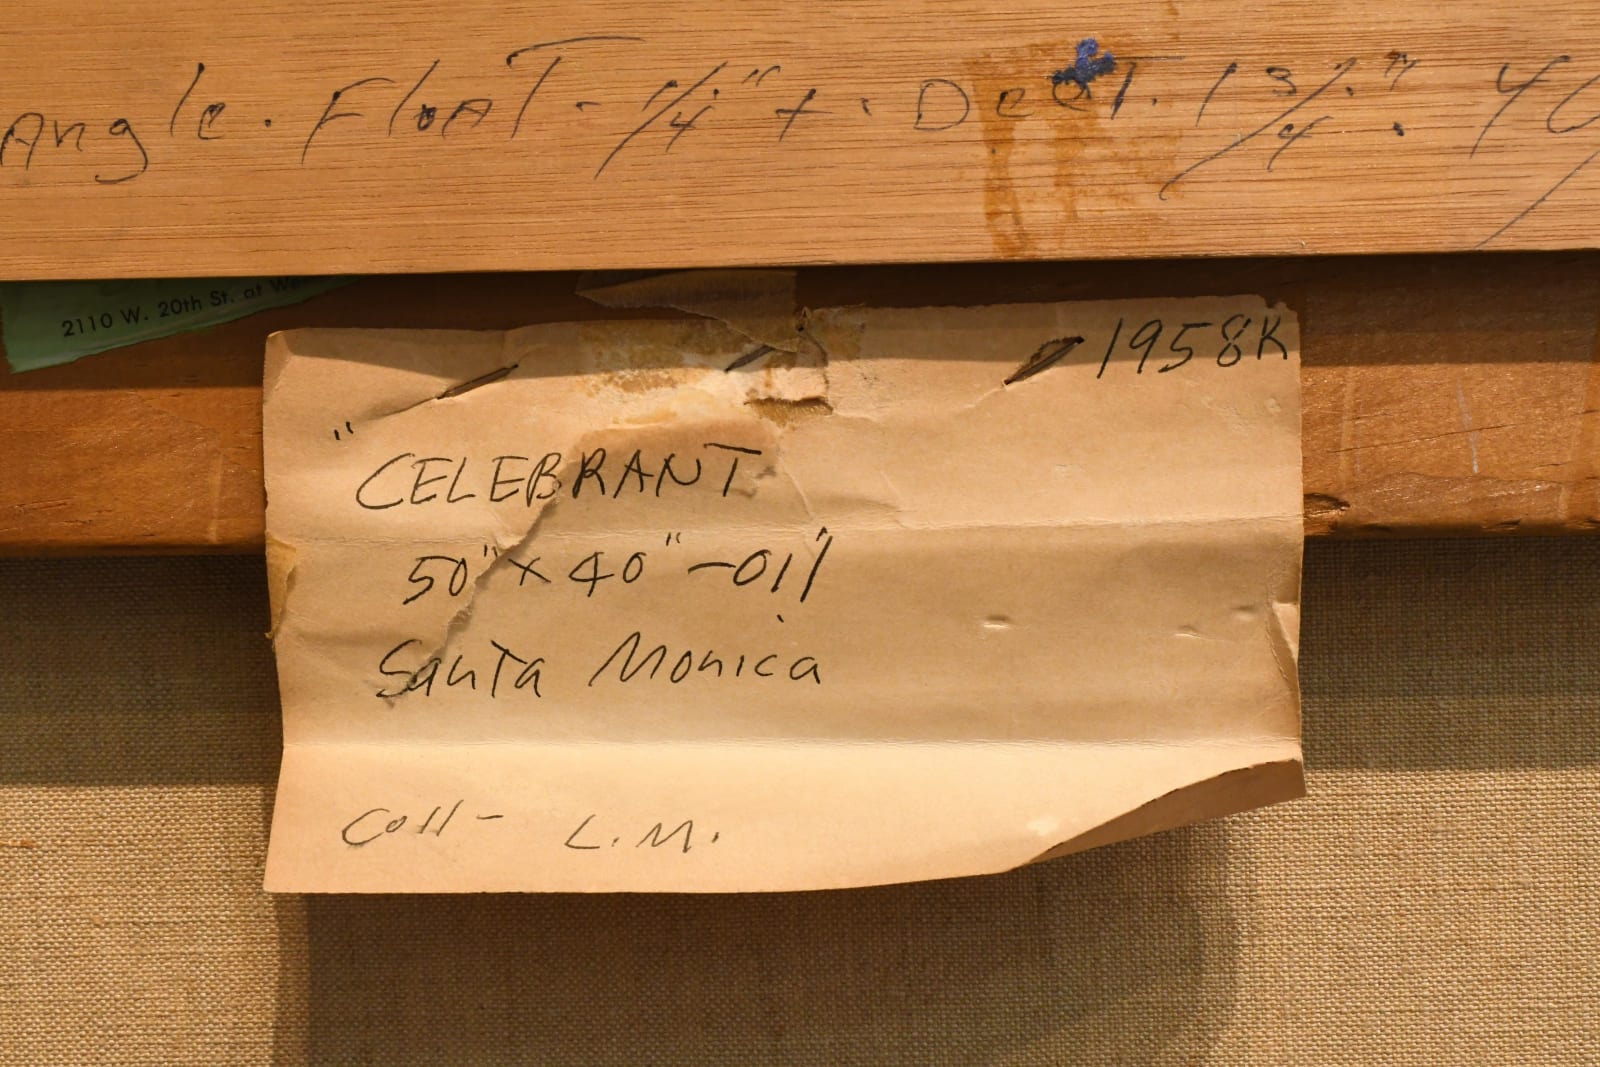 Angle. Float - 1/4" + . Dept. 1 3/4".
2110 W. 20th St. at We
1958K
"CELEBRANT
50" x 40" - Oil
Santa Monica
Coll- L.M.